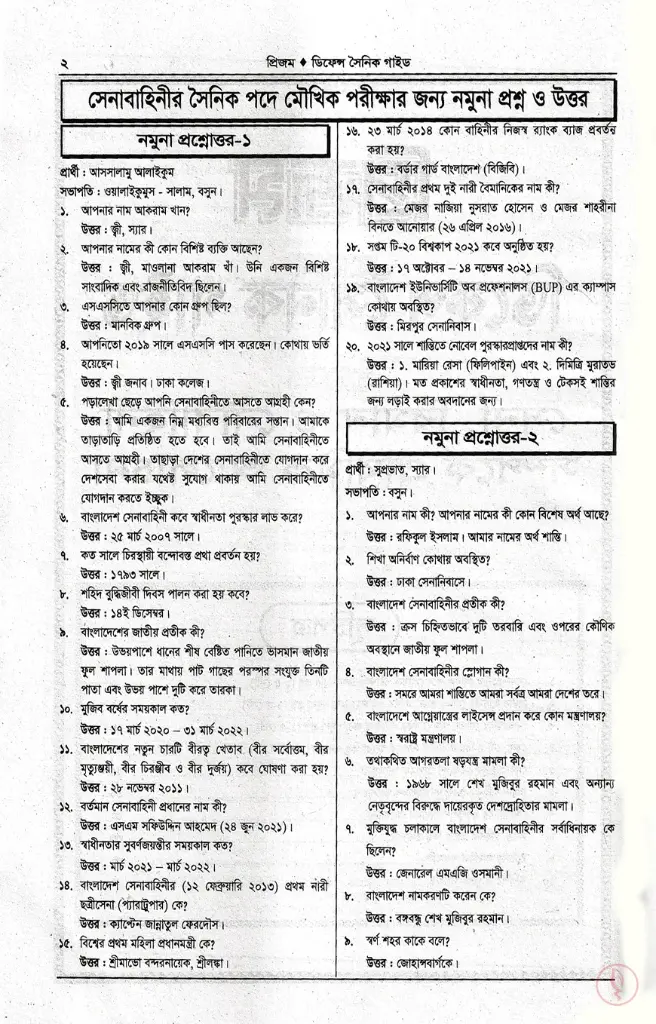 ২
প্রিজম ♦ ডিফেন্স সৈনিক গাইড
সেনাবাহিনীর সৈনিক পদে মৌখিক পরীক্ষার জন্য নমুনা প্রশ্ন ও উত্তর
নমুনা প্রশ্নোত্তর-১
প্রার্থী : আসসালামু আলাইকুম
সভাপতি : ওয়ালাইকুমুস - সালাম, বসুন।
১. আপনার নাম আকরাম খান?
উত্তর : জ্বী, স্যার।
২. আপনার নামের কী কোন বিশিষ্ট ব্যক্তি আছেন?
উত্তর : জ্বী, মাওলানা আকরাম খাঁ। উনি একজন বিশিষ্ট
সাংবাদিক এবং রাজনীতিবিদ ছিলেন।
৩. এসএসসিতে আপনার কোন গ্রুপ ছিল?
উত্তর : মানবিক গ্রুপ।
৪. আপনিতো ২০১৯ সালে এসএসসি পাস করেছেন। কোথায় ভর্তি
হয়েছেন।
উত্তর : জ্বী জনাব। ঢাকা কলেজ।
৫. পড়ালেখা ছেড়ে আপনি সেনাবাহিনীতে আসতে আগ্রহী কেন?
উত্তর : আমি একজন নিম্ন মধ্যবিত্ত পরিবারের সন্তান। আমাকে
তাড়াতাড়ি প্রতিষ্ঠিত হতে হবে। তাই আমি সেনাবাহিনীতে
আসতে আগ্রহী। তাছাড়া দেশের সেনাবাহিনীতে যোগদান করে
দেশসেবা করার যথেষ্ট সুযোগ থাকায় আমি সেনাবাহিনীতে
যোগদান করতে ইচ্ছুক।
৬. বাংলাদেশ সেনাবাহিনী কবে স্বাধীনতা পুরস্কার লাভ করে?
উত্তর : ২৫ মার্চ ২০০৭ সালে।
৭. কত সালে চিরস্থায়ী বন্দোবস্ত প্রথা প্রবর্তন হয়?
উত্তর : ১৭৯৩ সালে।
৮. শহিদ বুদ্ধিজীবী দিবস পালন করা হয় কবে?
উত্তর : ১৪ই ডিসেম্বর।
৯. বাংলাদেশের জাতীয় প্রতীক কী?
উত্তর : উভয়পাশে ধানের শীষ বেষ্টিত পানিতে ভাসমান জাতীয়
ফুল শাপলা। তার মাথায় পাট গাছের পরস্পর সংযুক্ত তিনটি
পাতা এবং উভয় পাশে দুটি করে তারকা।
১০. মুজিব বর্ষের সময়কাল কত?
উত্তর : ১৭ মার্চ ২০২০ – ৩১ মার্চ ২০২২।
১১. বাংলাদেশের নতুন চারটি বীরত্ব খেতাব (বীর সর্বোত্তম, বীর
মৃত্যুঞ্জয়ী, বীর চিরঞ্জীব ও বীর দুর্জয়) কবে ঘোষণা করা হয়?
উত্তর : ২৮ নভেম্বর ২০১১।
১২. বর্তমান সেনাবাহিনী প্রধানের নাম কী?
উত্তর : এসএম সফিউদ্দিন আহমেদ (২৪ জুন ২০২১)।
১৩. স্বাধীনতার সুবর্ণজয়ন্তীর সময়কাল কত?
উত্তর : মার্চ ২০২১ – মার্চ ২০২২।
১৪. বাংলাদেশ সেনাবাহিনীর (১২ ফেব্রুয়ারি ২০১৩) প্রথম নারী
ছত্রীসেনা (প্যারাট্রুপার) কে?
উত্তর : ক্যাপ্টেন জান্নাতুল ফেরদৌস।
১৫. বিশ্বের প্রথম মহিলা প্রধানমন্ত্রী কে?
উত্তর : শ্রীমাভো বন্দরনায়েক, শ্রীলঙ্কা।
১৬. ২৩ মার্চ ২০১৪ কোন বাহিনীর নিজস্ব র‍্যাংক ব্যাজ প্রবর্তন
করা হয়?
উত্তর : বর্ডার গার্ড বাংলাদেশ (বিজিবি)।
১৭. সেনাবাহিনীর প্রথম দুই নারী বৈমানিকের নাম কী?
উত্তর : মেজর নাজিয়া নুসরাত হোসেন ও মেজর শাহরীনা
বিনতে আনোয়ার (২৬ এপ্রিল ২০১৬)।
১৮. সপ্তম টি-২০ বিশ্বকাপ ২০২১ কবে অনুষ্ঠিত হয়?
উত্তর : ১৭ অক্টোবর – ১৪ নভেম্বর ২০২১।
১৯. বাংলাদেশ ইউনিভার্সিটি অব প্রফেশনালস (BUP) এর ক্যাম্পাস
কোথায় অবস্থিত?
উত্তর : মিরপুর সেনানিবাস।
২০. ২০২১ সালে শান্তিতে নোবেল পুরস্কারপ্রাপ্তদের নাম কী?
উত্তর : ১. মারিয়া রেসা (ফিলিপাইন) এবং ২. দিমিত্রি মুরাতভ
(রাশিয়া)। মত প্রকাশের স্বাধীনতা, গণতন্ত্র ও টেকসই শান্তির
জন্য লড়াই করার অবদানের জন্য।
নমুনা প্রশ্নোত্তর-২
প্রার্থী : সুপ্রভাত, স্যার।
সভাপতি : বসুন।
১. আপনার নাম কী? আপনার নামের কী কোন বিশেষ অর্থ আছে?
উত্তর : রফিকুল ইসলাম। আমার নামের অর্থ শান্তি।
২. শিখা অনির্বাণ কোথায় অবস্থিত?
উত্তর : ঢাকা সেনানিবাসে।
৩. বাংলাদেশ সেনাবাহিনীর প্রতীক কী?
উত্তর : ক্রস চিহ্নিতভাবে দুটি তরবারি এবং ওপরের কৌণিক
অবস্থানে জাতীয় ফুল শাপলা।
৪. বাংলাদেশ সেনাবাহিনীর স্লোগান কী?
উত্তর : সমরে আমরা শান্তিতে আমরা সর্বত্র আমরা দেশের তরে।
৫. বাংলাদেশে আগ্নেয়াস্ত্রের লাইসেন্স প্রদান করে কোন মন্ত্রণালয়?
উত্তর : স্বরাষ্ট্র মন্ত্রণালয়।
৬. তথাকথিত আগরতলা ষড়যন্ত্র মামলা কী?
উত্তর : ১৯৬৮ সালে শেখ মুজিবুর রহমান এবং অন্যান্য
নেতৃবৃন্দের বিরুদ্ধে দায়েরকৃত দেশদ্রোহিতার মামলা।
৭. মুক্তিযুদ্ধ চলাকালে বাংলাদেশ সেনাবাহিনীর সর্বাধিনায়ক কে
ছিলেন?
উত্তর : জেনারেল এমএজি ওসমানী।
৮. বাংলাদেশ নামকরণটি করেন কে?
উত্তর : বঙ্গবন্ধু শেখ মুজিবুর রহমান।
৯. স্বর্ণ শহর কাকে বলে?
উত্তর : জোহান্সবার্গকে।